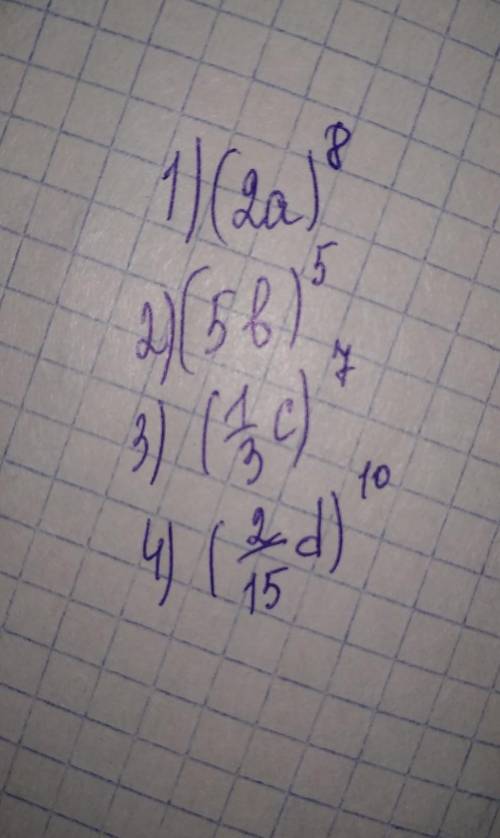 1) (2a)^8
2) (5b)^5
3) (1/3 c)^7
4) (2/15 d)^10